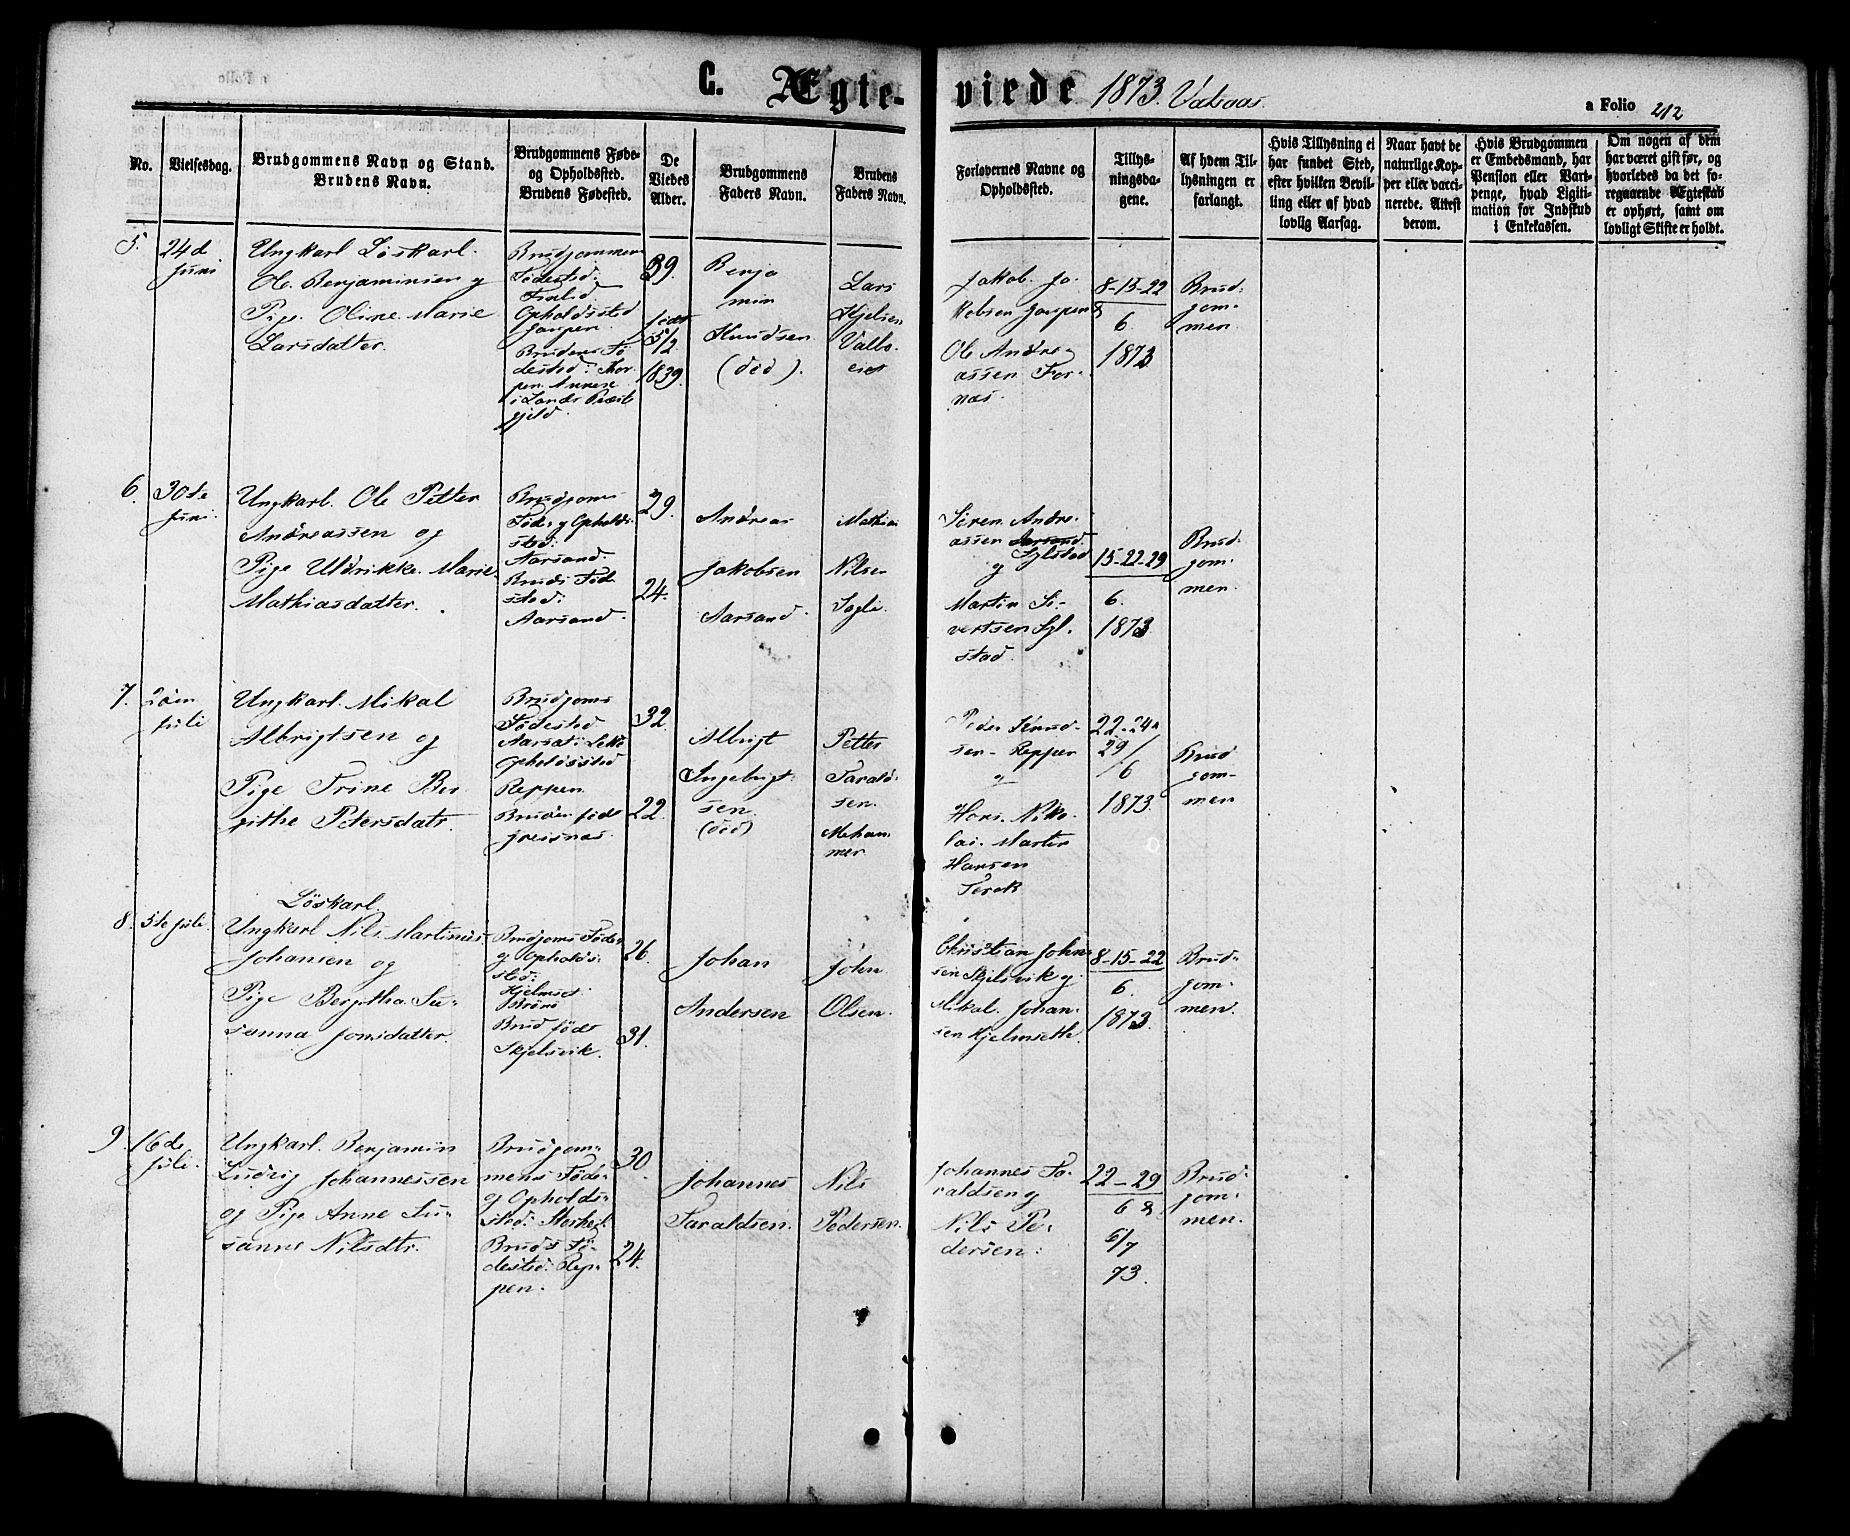 C. Ægte-viede 1873. Valsaas.
a Folio 212
No.
Vielsesdag.
Brudgommens Navn og Stand.
Brudens Navn.
Brudgommens Føde-
og Opholdssted.
Brudens Fødested.
De
Viedes
Alder.
Brudgommens
Faders Navn.
Brudens
Faders Navn.
Forlovernes Navne og
Opholdssted.
Tillys-
ningsda-
gene.
Af hvem Til-
lysningen er
forlangt.
Hvis Tillysning ei
har fundet Sted,
efter hvilken Bevil-
ling eller af hvad
lovlig Aarsag.
Naar havt de
naturlige Kop-
per eller vacci-
nerede. Attest
derom.
Hvis Brudgommen
er Embedsmand, har
Pension eller Vart-
penge, hvad Ligiti-
mation for Indskud
i Enkekassen.
Om nogen af dem
har været gift før, og
hvorledes da det fo-
regaaende Ægteskab
er ophørt, samt om
lovligt Skifte er holdt.
5.
24d
Juni
Ungkarl Løskarl.
Ole Benjaminsen og
Pige Oline Marie
Larsdatter.
Brudgommens
Fødested:
Opholdssted
Jaupen.
Brudens Fø-
dested:
i Lands Præste
gjeld.
39.
født
5/2
1839.
Benja
min
Knudsen
(død).
Lars
Kjelsen
Valbo-
eiet
Jakob Ja-
kobsen Jaupen &
Ole Andre-
assen For-
næs.
8-15-22
6.
1873
Brud-
gom-
men.
6.
30te
Juni.
Ungkarl Ole Petter
Andreassen og
Pige Uldrikke Marie
Mathiasdatter.
Brudgoms
Føde og Opholds-
sted:
Aarsand.
Bruds Føde
sted:
Aarsand.
29.
24.
Andreas
Jakobsen
Aarsand.
Mathias
Nilsen
Sagli.
Søren Andre-
assen Aarsand.
Sylstad
og
Martin Si-
vertsen Syl-
stad.
15-22-29
6.
1873
Brud-
gom-
men.
7.
2den
Juli
Ungkarl Mikal
Albrigtsen og
Pige Trine Ber
githe Petersdatr.
Brudgoms
Fødested
Opholdssted
Reppen.
Bruden født
32.
22.
Albrigt
Ingebrigt-
sen.
(død)
Petter
Tarald-
sen.
Meham-
mer.
Peder Knud-
sen Reppen
og
Hans Niko-
lai Martin
Hansen
22-24
29/
/6
1873.
Brud
gom-
men
8.
5te Juli
Løskarl.
Ungkarl Nils Martinus
Johansen og
Pige Bergitha Su-
sanna Jonsdatter.
Brudgoms Føde-
og Opholds-
sted:
Hjelmset
Brud født
Skjelsvik.
26.
31.
Johan
Andersen
John
Olsen.
Christian John-
sen Skjelsvik og
Mikal Johan-
sen Hjelmseth.
8-15-22
6.
1873.
Brud-
gom-
men.
9.
16de
Juli.
Ungkarl Benjamin
Ludvig Johannessen
og Pige Anne Su-
sanne Nilsdtr.
Brudgom-
mens Føde-
og Opholds-
sted:
Bruds Fø-
dested: Rep-
pen.
30.
24.
Johannes
Taraldsen.
Nils
Pedersen.
Johannes Ta-
raldsen og
Nils Pe-
dersen.
22-29
6 &
6/7
73.
Brud-
gom-
men.